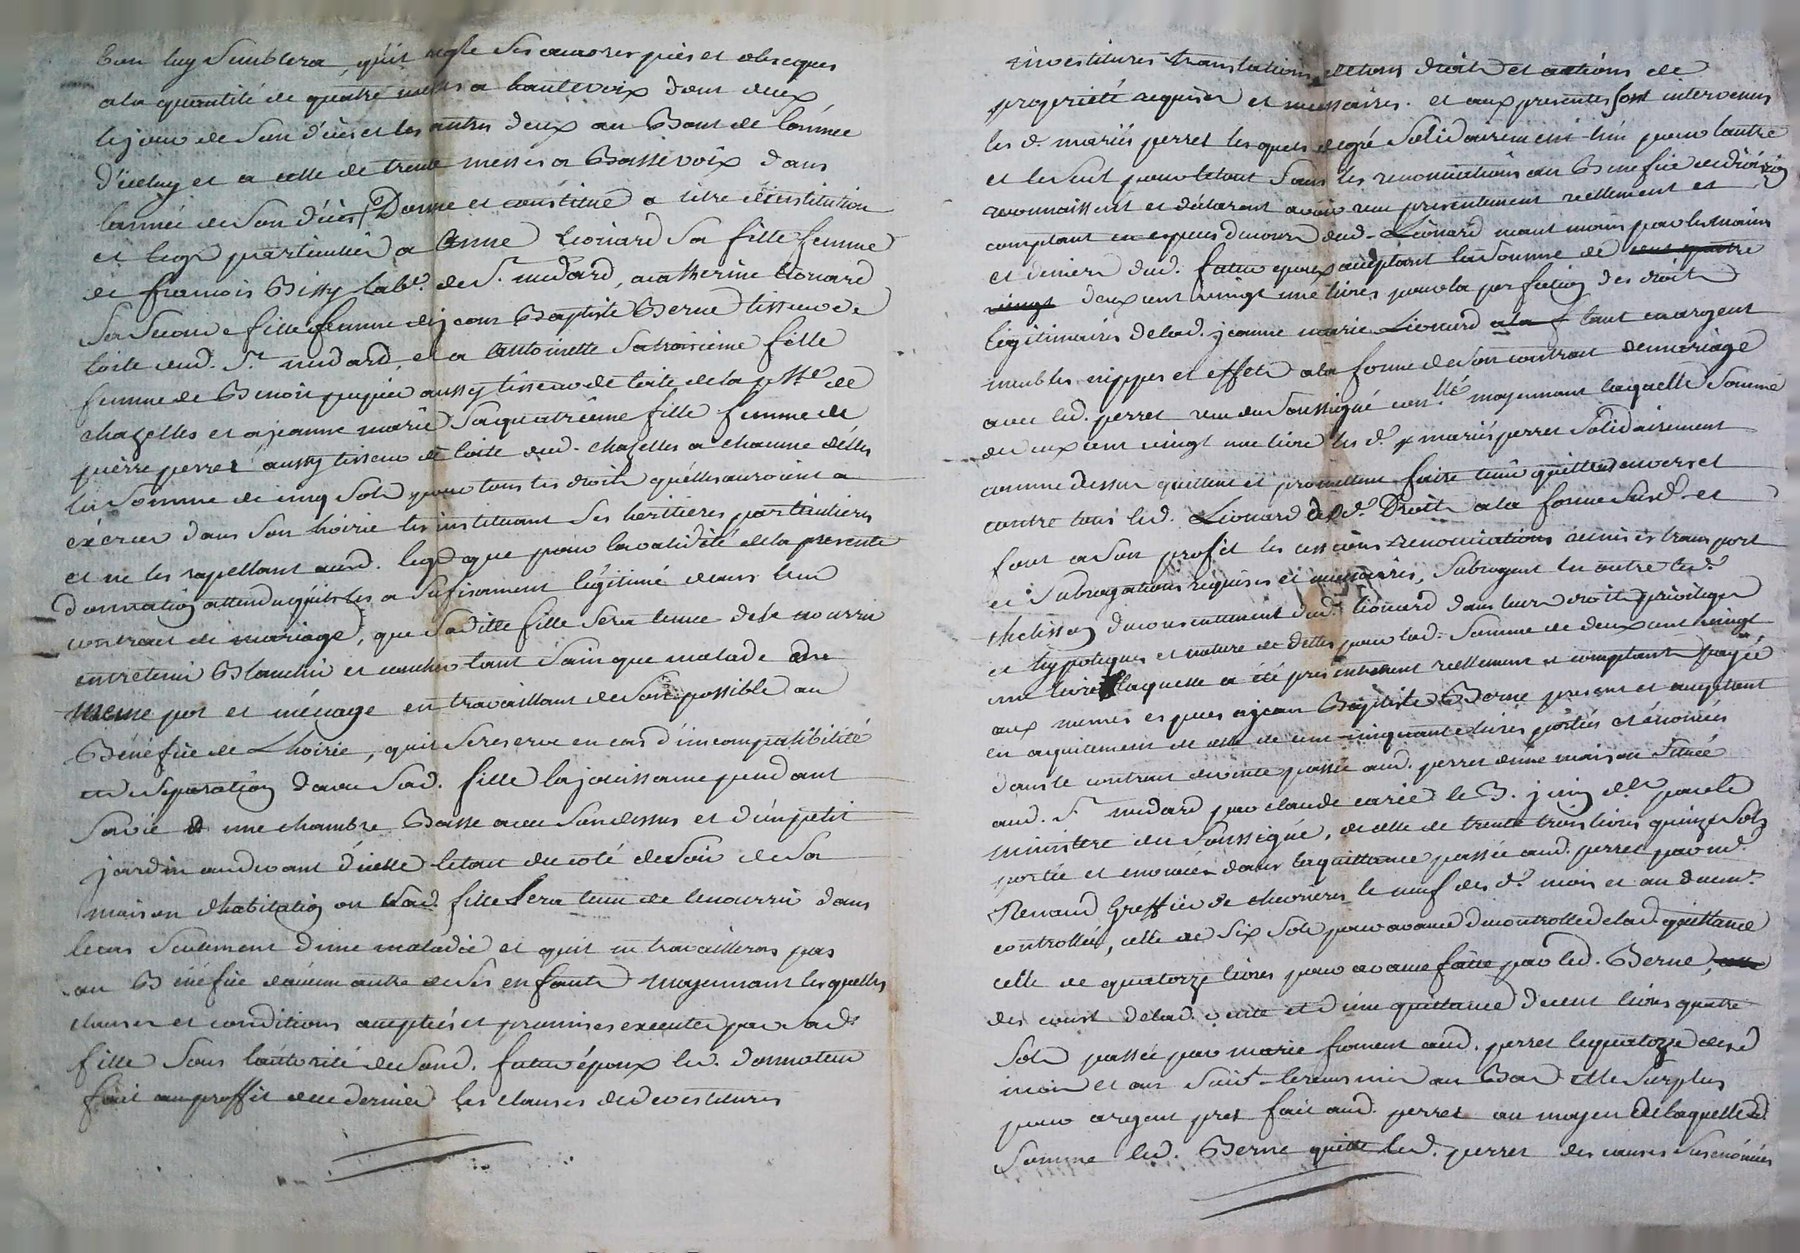 bon luy semblera, quit regle ses œuvres pies et obseques
ala quantité de quatre messes a hautevoix dont deux
le jour de son décès et les autres deux au Bout de lannée
d'iceluy et a celle de trente messes a Bassevoix dans
lannée de son décès Donne et constitue a titre d'institution
et legs particulier a anne Leonard sa fille femme
de francois Bissy lab.r de S.t medard, a catherine leonard
sa seconde fille femme de jean Baptiste Berne tisseur de
toile aud. S.t medard, et a antoinette sa troisieme fille
femme de Benoit pupier aussy tisseur de toile de la p.sse de
chazelles et a jeanne marie sa quatrieme fille femme de
pierre perret aussy tisseur de toile aud. chazelles a chacune delles
la somme de cinq sols pour tous les droits quelles auroient a
éxercer dans son hoirie les instituant ses heritieres particulieres
et ne les rapellant aud. legs que pour la validité de la presente
donnation attendu quil les a sufisament légitimé dans leur
contract de mariage, que sa ditte fille sera tenue de le nourrir
entretenir Blanchir et coucher tant sain que malade a
meme pot et ménage en travaillant de son possible au
Bénéfice de Lhoirie, quil se reserve en cas d'incompatibilité
et de séparation d'avec sad. fille la jouissance pendant
sa vie d une chambre Basse avec son dessus et d'un petit
jardin au devant d'icelle le tout du coté de soir de sa
maison d'habitation ou sad. fille sera tenue de le nourrir dans
le cas seulement d'une maladie et quil ne travaillera pas
au Bénéfice daucun autre de ses enfants moyennant lesquelles
clauses et conditions acceptées et promises executer par sad.
fille sous lautorité de sond. futur époux led. donnateur
fait au proffit de ce dernier les clauses de devestitures
investitures translations de tous droits et actions de
propriété requises et necessaires. et aux presentes sont intervenus
les d. mariés perret lesquels de gré solidairement lun pour lautre
et le seul pour le tout sous les renonciations au Benefice de division
reconnaissent et déclarent avoir recu presentement réellement et
comptant en especes de cours dud. Léonard mais par les mains
et deniers dud. futur epoux acceptant la somme de cent quatre
vingt deux cent vingt une livres pour la perfection des droits
légitimaires de lad. jeanne marie Léonard a la tant en argent
meubles nippes et effets a la forme de son contrat de mariage
avec led. perret recu du soussigné con.llé moyennant laquelle somme
de deux cent vingt une livre les d. mariés perret solidairement
comme dessus quittent et promettent faire tenir quitte envers et
contre tous led. Léonard desd. Droits a la forme susd. et
font a son profit les cessions renonciations demis transport
et subrogations requises et necessaires, subrogent en outre led.
thelisson du consentement dud. leonard dans leurs droits privileges
et hypoteques et nature de dettes pour lad. somme de deux cent vingt
une livre laquelle a été présentement reellement et comptant payée
aux memes especes a jean Baptiste Berne present et acceptant
en acquitement de celle de cent cinquante livres portées et énoncées
dans le contrat de vente passé aud. perret d'une maison située
aud. S.t medard par claude carié le 3. juin d.er par le
ministere du soussigné, de celle de trente trois livres quinze sols
portée et énoncée dans la quittance passée aud. perret par m.e
Renaud Greffier de chevrieres le neuf des d. mois et an duem.t
controllée, celle de six sols pour avance du controlle de lad. quittance
celle de quatorze livres pour avance faitte par led. Berne,
des coust de lad. vente et d'une quittance de cent livres quatre
sols passée par marie froment aud. perret le quatorze desd.
mois et an suiv.t le recu mis au Bas et le surplus
pour argent pret fait aud. perret au moyen de laquelle d.
somme led. Berne quitte led. perret des causes susénoncées